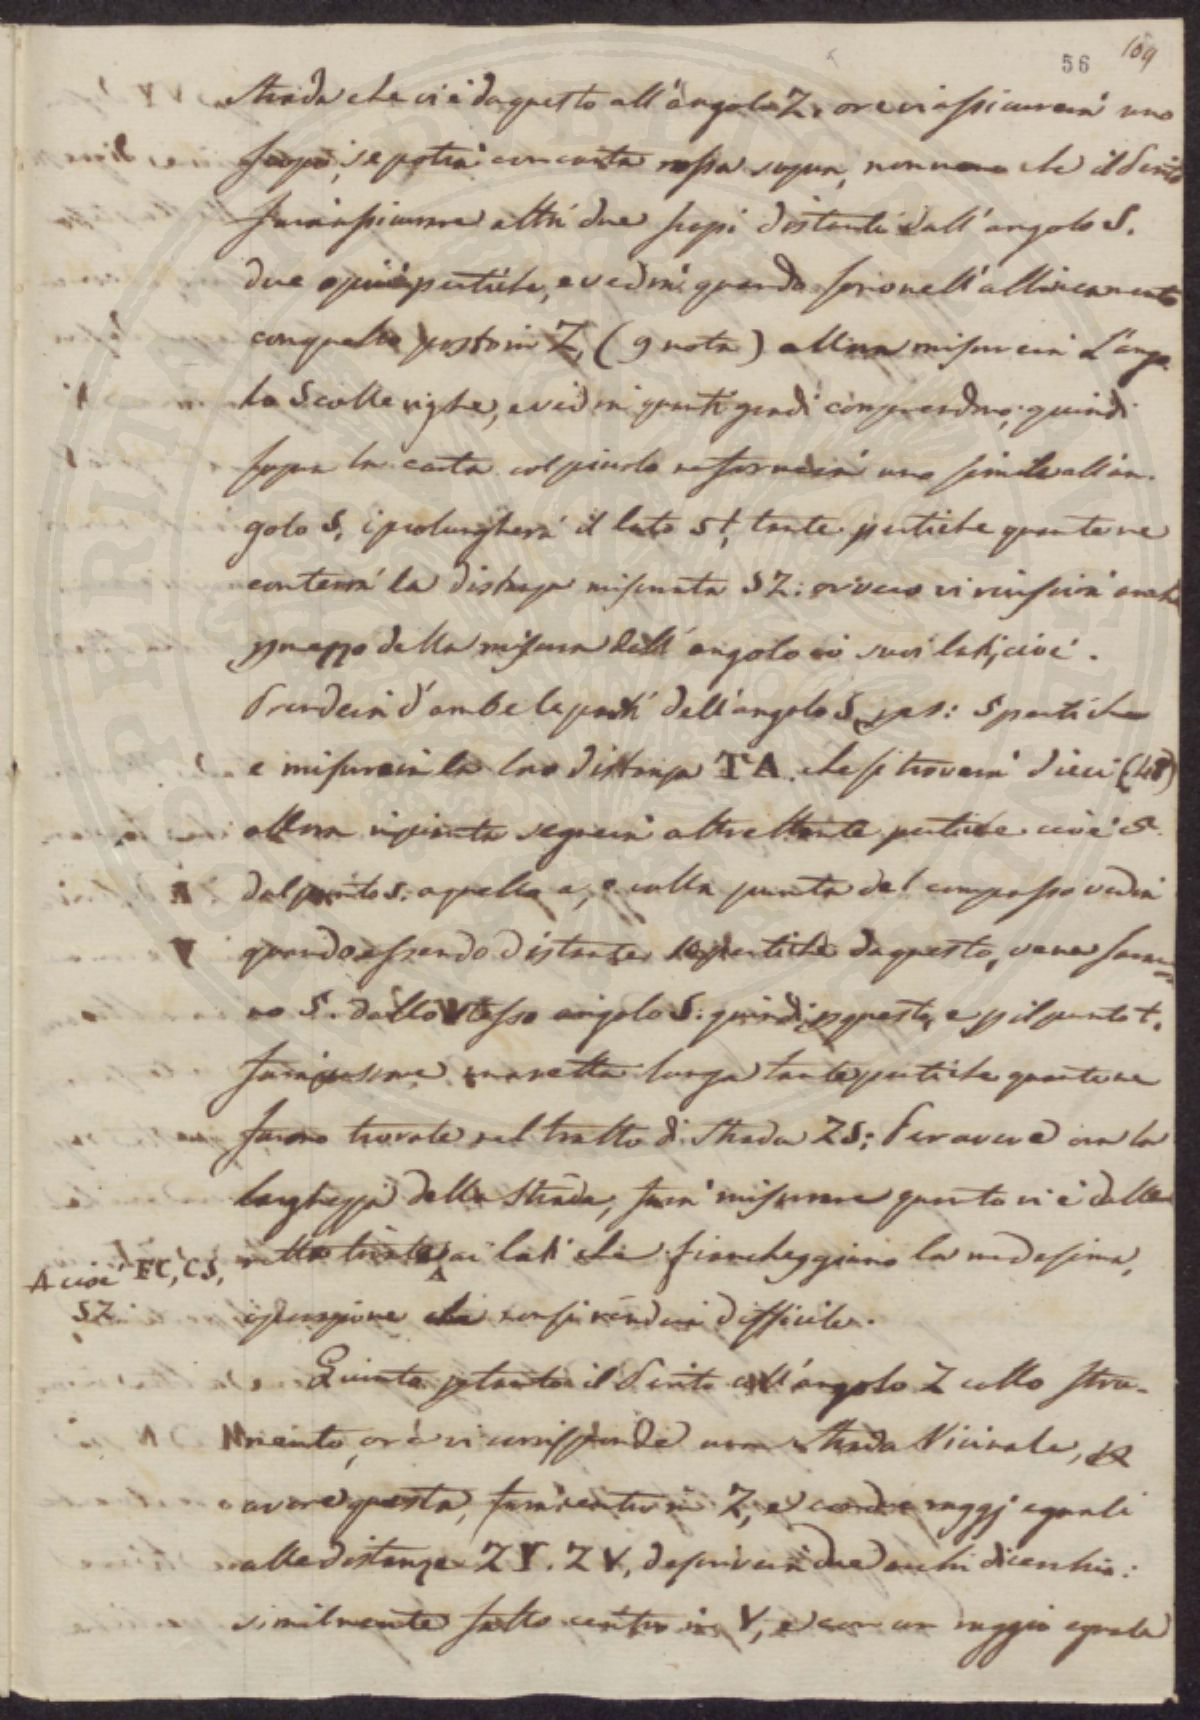 109
56
strada che vi è da questo all'angolo Z, ove vi assicurerà uno
scopo, se potrà con carta rossa sopra, non meno che il Perito
farà assicurare altri due scopi distanti dall'angolo S.
due o più pertiche, e vedrà quando sono nell'allineamento
con quello posto in Z, (9 nota) allora misurerà l'ango-
lo S colle righe, e vedrà quanti gradi comprendono; quindi
sopra la carta col piccolo ne formerà uno simile all'an-
golo S, e prolungherà il lato St, tante pertiche quante ne
conterrà la distanza misurata SZ: ovvero vi riuscirà anche
p mezzo della misura dell'angolo coi suoi lati, cioè.
Prenderà d'ambe le parti dell'angolo S, per es: 5 pertiche
e misurerà la loro distanza TA. che si troverà dieci (48)
allora in pianta segnerà altrettante pertiche cioè 5.
dal punto s. a quello a, e colla punta del compasso vedrà
quando essendo distante 10 pertiche da questo, ve ne saran-
no 5. dallo stesso angolo S: quindi p questo, e p il punto t.
farà passare una retta lunga tante pertiche quante ne
furono trovate nel tratto di strada ZS; Per avere ora la
larghezza della strada, farà misurare quanto vi è dalle
rette tirate ai lati che fiancheggiano la medesima,
A cioè FC, CS,
SZ
operazione che non si renderà difficile.
Giunto pertanto il Perito all'angolo Z collo stru-
mento, ove vi corrisponde una strada Vicinale, p
avere questa, farà centro in Z, e con due raggj eguali
alle distanze ZY. ZV, descriverà due archi di cerchio:
similmente fatto centro in V, e con un raggio eguale